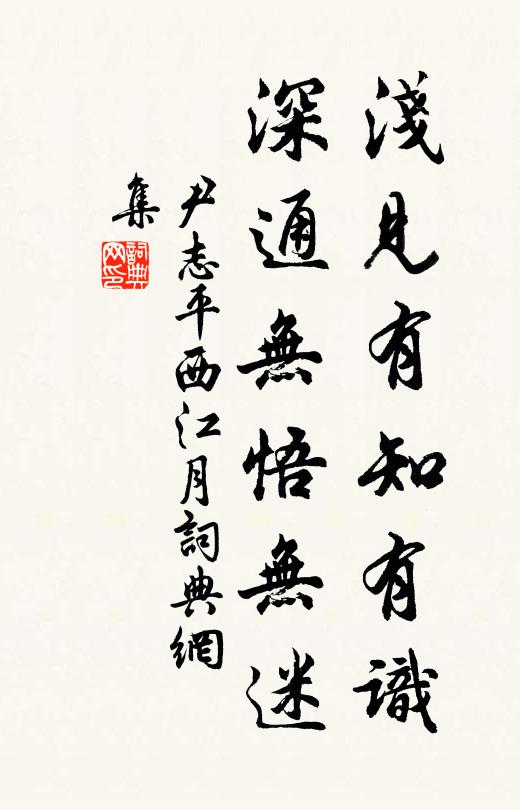 淺見有知有識
深通無悟無迷
尹志平西江月詞典網
集
詞典網印